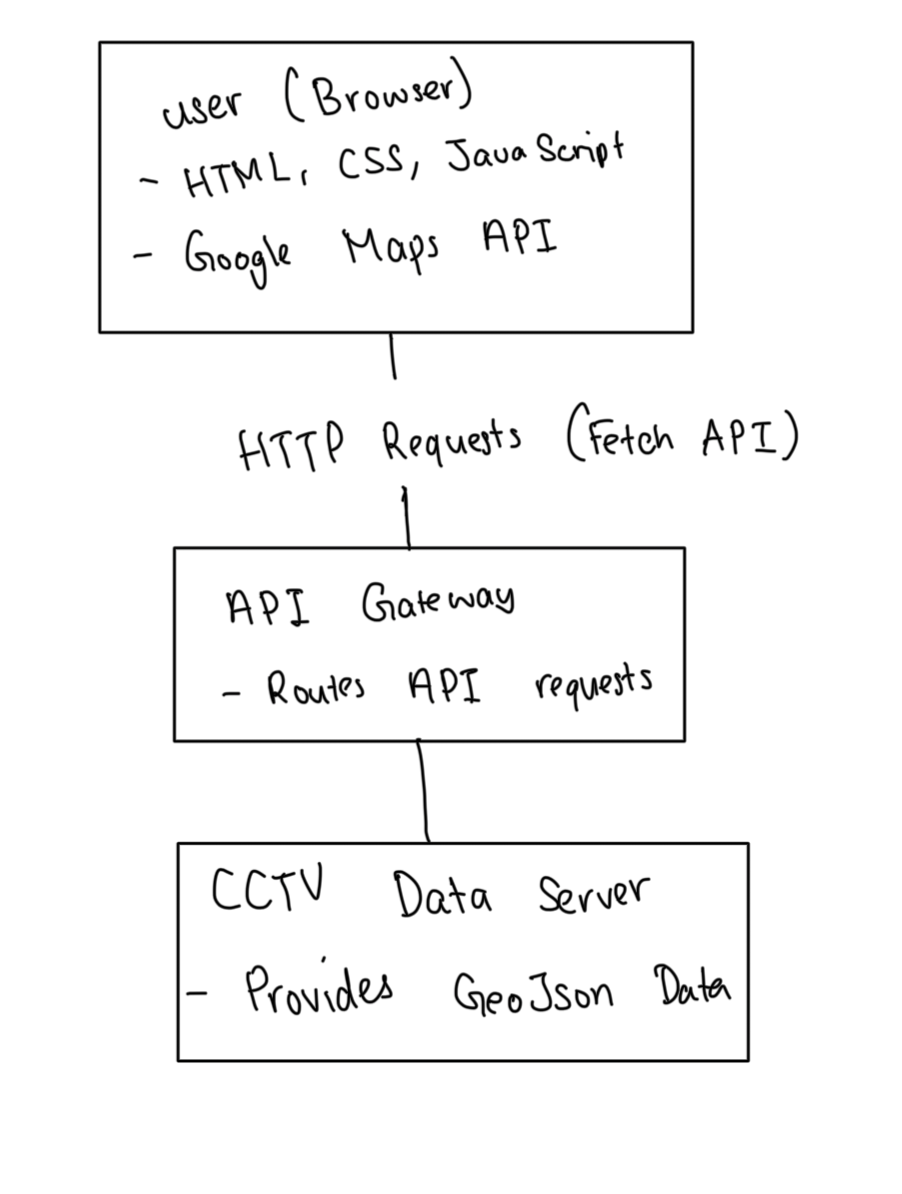 user (Browser)
- HTML, CSS, JavaScript
- Google Maps API
HTTP Requests (Fetch API)
API Gateway
- Routes API requests
CCTV Data Server
- Provides GeoJson Data